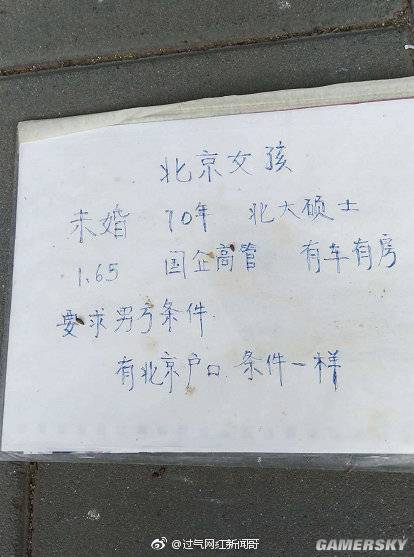 北京女孩
未婚 70年 北大硕士
1.65 国企高管 有车有房
要求男方条件
有北京户口 条件一样
@过气网红新闻哥
GAMERSKY